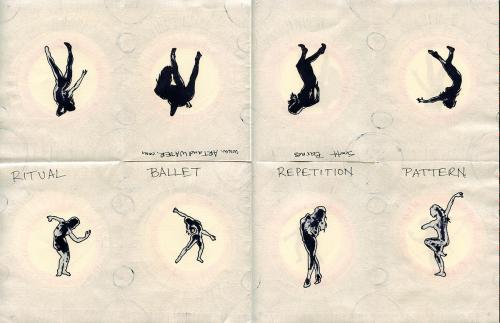 www.ARTandWATER.com
Scott Barnes
RITUAL
BALLET
REPETITION
PATTERN